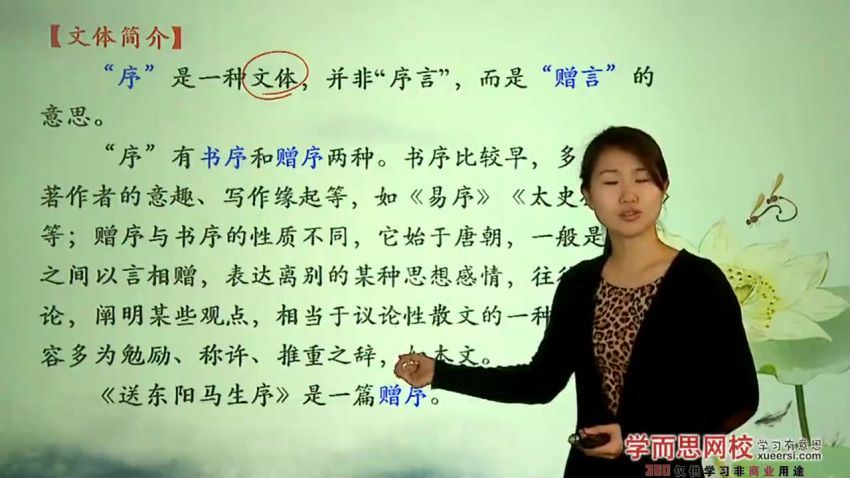 【文体简介】
“序”是一种文体，并非“序言”，而是“赠言”的
意思。
“序”有书序和赠序两种。书序比较早，多
著作者的意趣、写作缘起等，如《易序》《太史
等；赠序与书序的性质不同，它始于唐朝，一般是
之间以言相赠，表达离别的某种思想感情，往
论，阐明某些观点，相当于议论性散文的一种
容多为勉励、称许、推重之辞，如本文。
《送东阳马生序》是一篇赠序。
学而思网校 学习有意思
xueersi.com
360 仅供学习非商业用途